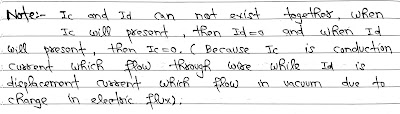 Note:- Ic and Id can not exist together when
Ic will present, then Id=0 and when Id
will present, then Ic=0. (Because Ic is conduction
current which flow through wire while Id is
displacement current which flow in vacuum due to
change in electric flux).